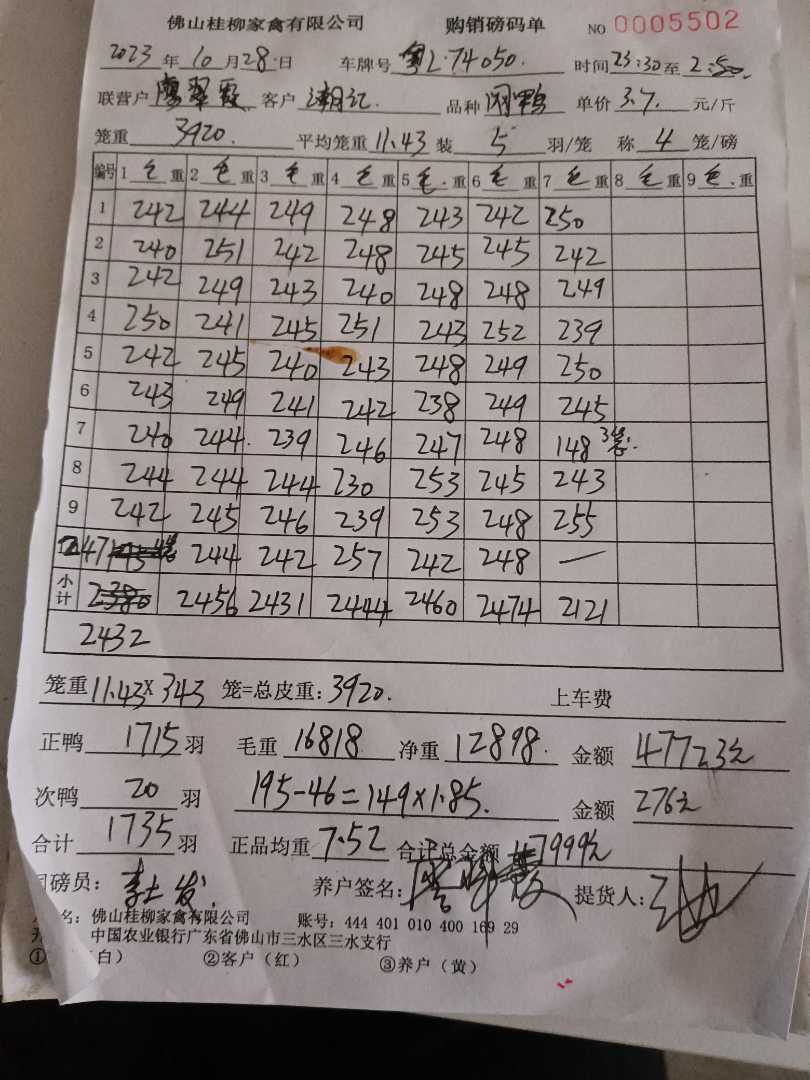 佛山桂柳家禽有限公司 购销磅码单 NO 0005502
2023年10月28日 车牌号 粤L·74050. 时间23:30至2:50.
联营户 廖翠霞 客户 潮记 品种 闲鸭 单价 3.7 元/斤
笼重 3920. 平均笼重 11.43 装 5 羽/笼 称 4 笼/磅
编号 1 毛 重 2 毛 重 3 毛 重 4 毛 重 5 毛 重 6 毛 重 7 毛 重 8 毛 重 9 毛 重
1 242 244 249 248 243 242 250
2 240 251 242 248 245 245 242
3 242 249 243 240 248 248 249
4 250 241 245 251 243 252 239
5 242 245 240 243 248 249 250
6 243 249 241 242 238 249 245
7 240 244 239 246 247 248 148 3笼
8 244 244 244 230 253 245 243
9 242 245 246 239 253 248 255
247 244 242 257 242 248 —
小计 2380 2456 2431 2444 2460 2474 2121
2432
笼重 11.43 X 343 笼=总皮重: 3920. 上车费
正鸭 1715 羽 毛重 16818 净重 12898 金额 47723元
次鸭 20 羽 195-46=149×1.85. 金额 276元
合计 1735 羽 正品均重 7.52 合计总金额 47999元
司磅员: 养户签名: 提货人:
名: 佛山桂柳家禽有限公司 账号: 444 401 010 400 169 29
中国农业银行广东省佛山市三水区三水支行
① (白) ②客户(红) ③养户(黄)